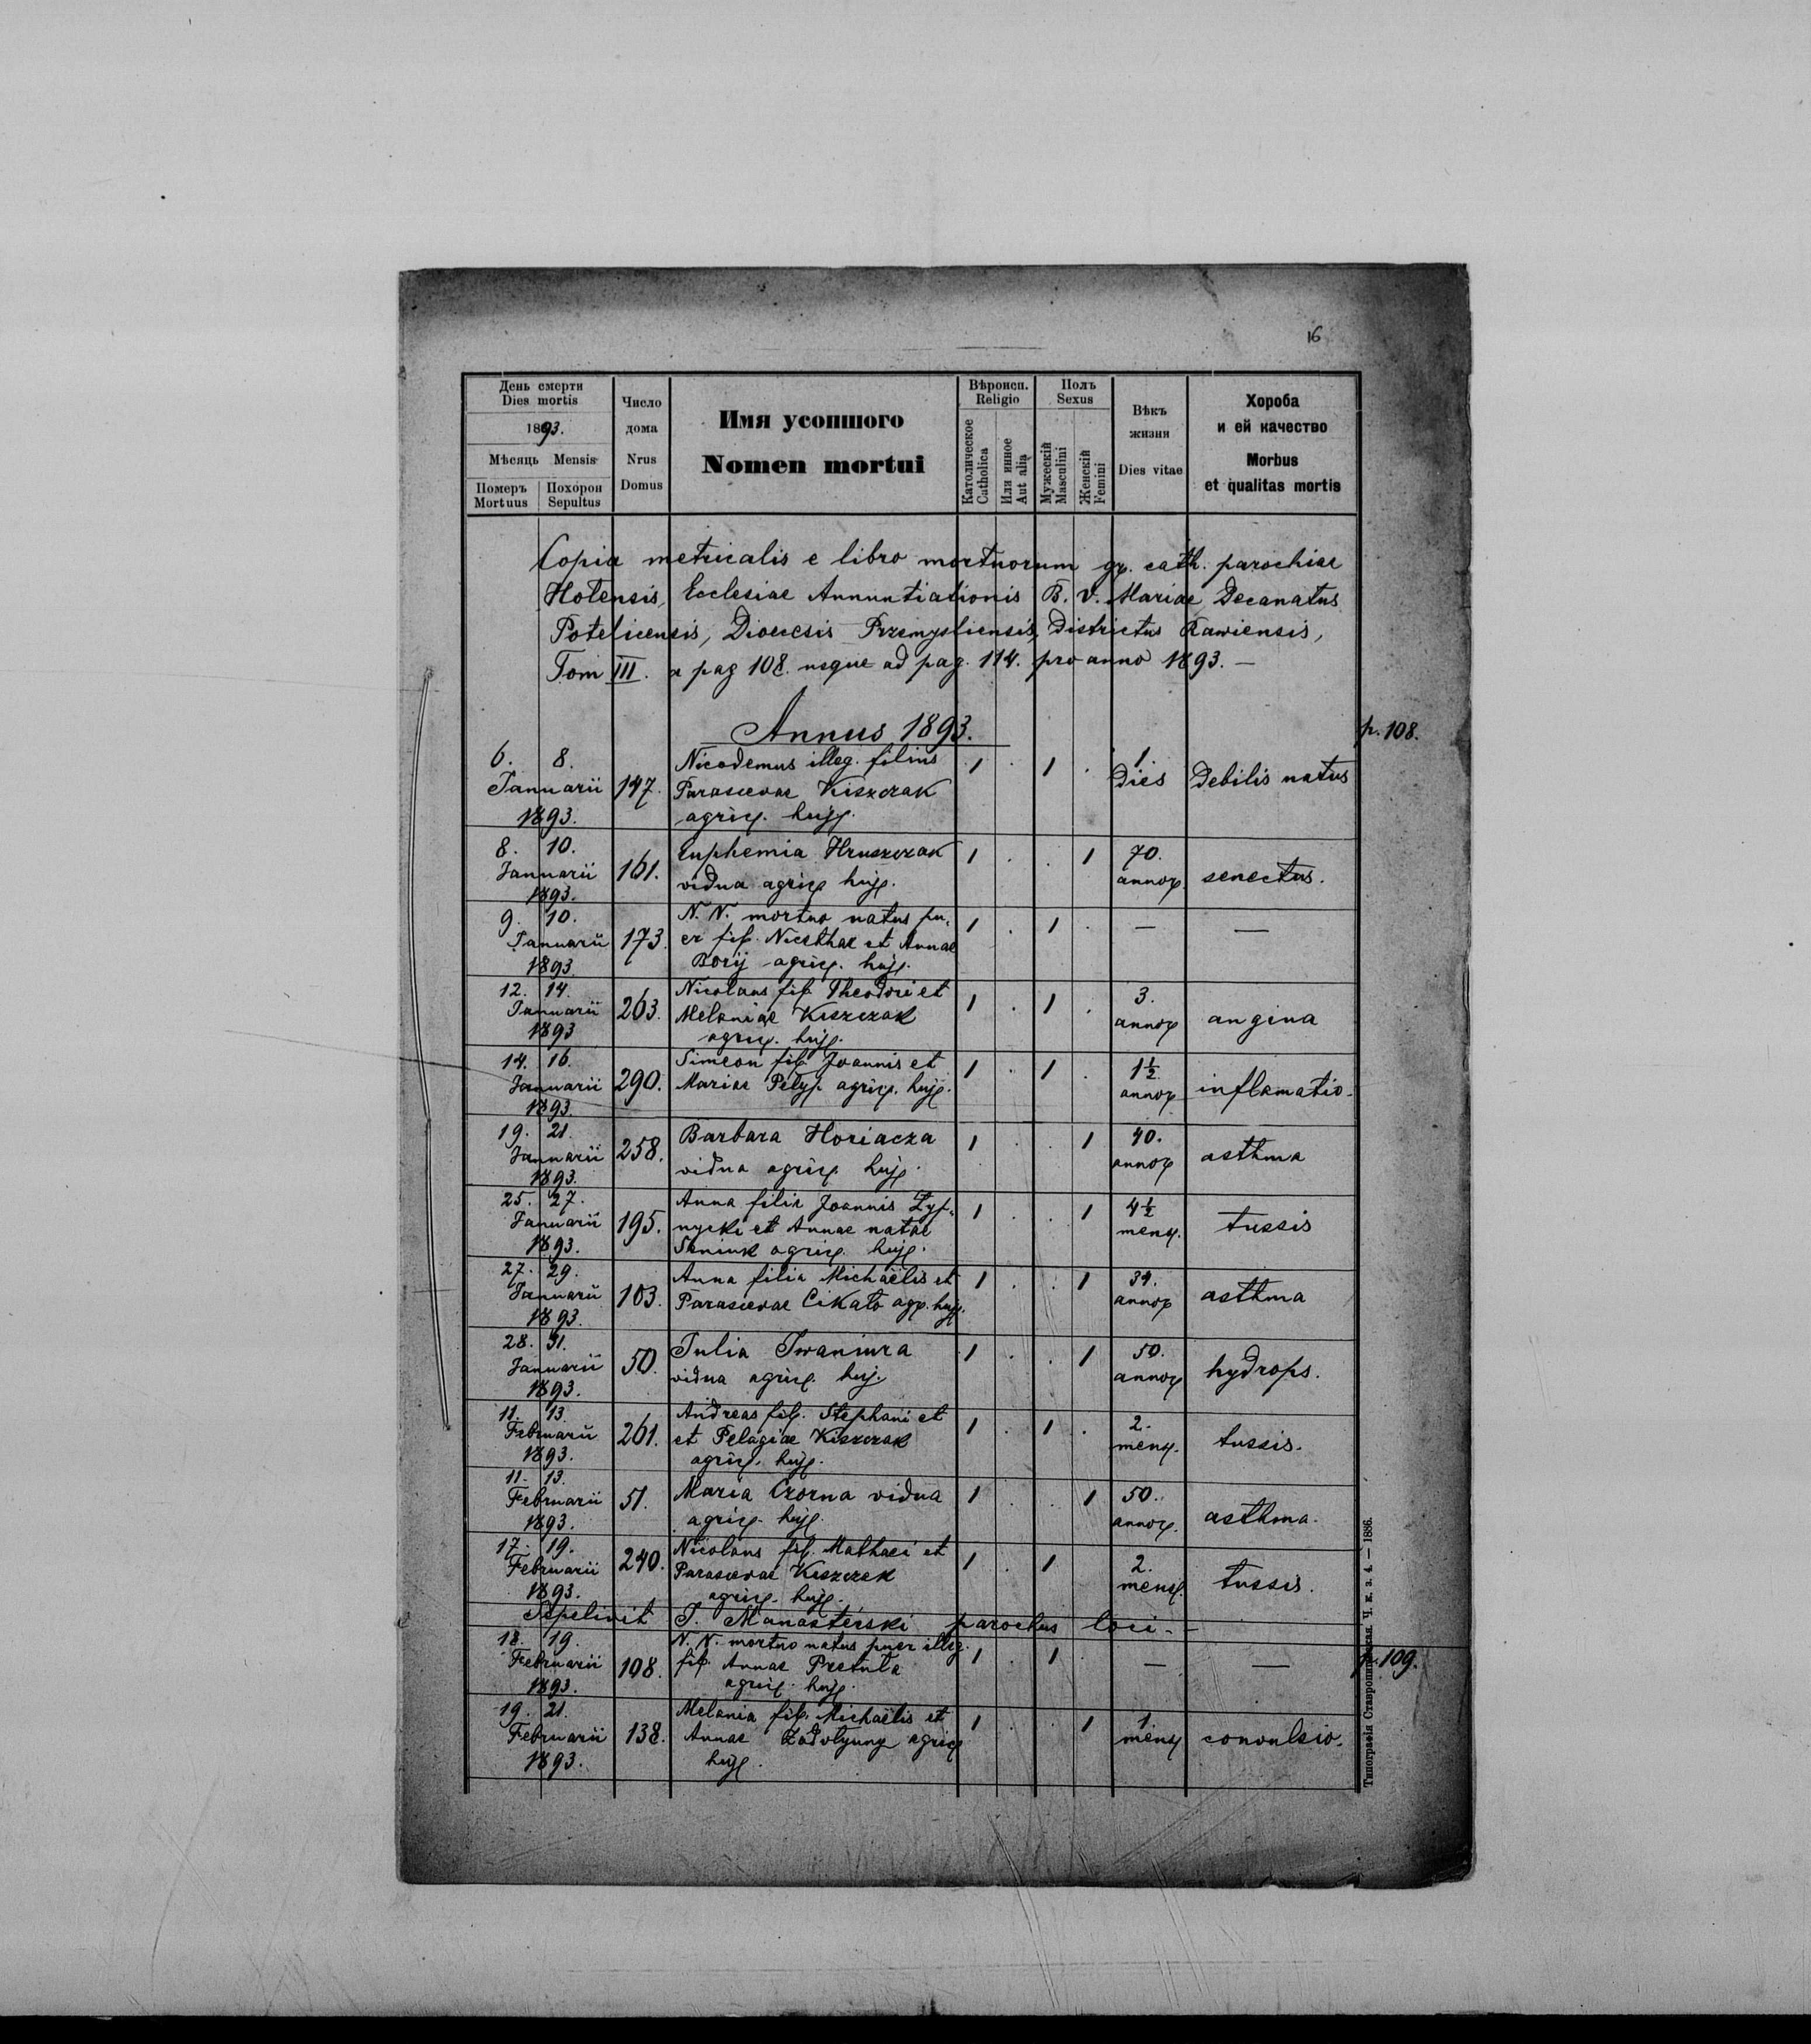 16
День смерти
Dies mortis
1893.
Мѣсяць Mensis
Померъ Похорон
Mortuus Sepultus
Число
дома
Nrus
Domus
Имя усопшого
Nomen mortui
Вѣроисп.
Religio
Католическое
Catholica
Или инное
Aut alia
Полъ
Sexus
Мужескій
Masculini
Женскій
Femini
Вѣкъ
жизня
Dies vitae
Хороба
и ей качество
Morbus
et qualitas mortis
Copia metricalis e libro mortuorum gr. cath. parochiae
Hotensis, Ecclesiae Annuntiationis B. V. Mariae Decanatus
Potelicensis, Dioecesis Przemysliensis, Districtus Rawiensis,
Tom III. a pag 108. usque ad pag. 114. pro anno 1893. —
Annus 1893.
p. 108.
6. 8. Nicodemus illeg. filius 1 . 1 . 1.
Januarii 147. Parascevae Kiszczak Dies Debilis natus
1893. agric. huj.
8. 10. Euphemia Hruszczak 1 . . 1 70.
Januarii 161. vidua agric. huj. annor. senectus.
1893.
9. 10. N. N. mortuo natus pu- 1 . 1 . — —
Januarii 173. er fil. Nicethae et Annae
1893. Borij agric. huj.
12. 14. Nicolaus fil. Theodori et 1 . 1 . 3.
Januarii 263. Melaniae Kiszczak annor. angina
1893 agric. huj.
14. 16. Simeon fil. Joannis et 1 . 1 . 1½
Januarii 290. Mariae Pelyp. agric. huj. annor. inflamatio.
1893.
19. 21. Barbara Horiacza 1 . . 1 40.
Januarii 258. vidua agric. huj. annor. asthma
1893.
25. 27. Anna filia Joannis Lyp- 1 . . 1 4½
Januarii 195. nycki et Annae natae mens. tussis
1893. agric. huj.
27. 29. Anna filia Michaëlis et 1 . . 1 34.
Januarii 103. Parascevae Cikato agr. huj. annor. asthma
1893.
28. 31. Julia Iwaniura 1 . . 1 50.
Januarii 50. vidua agric. huj. annor. hydrops.
1893.
11. 13. Andreas fil. Stephani et 1 . 1 . 2.
Februarii 261. et Pelagiae Kiszczak mens. tussis.
1893. agric. huj.
11. 13. Maria Czorna vidua 1 . . 1 50.
Februarii 51. agric. huj. annor. asthma.
1893.
17. 19. Nicolaus fil. Mathaei et 1 . 1 2.
Februarii 240. Parascevae Kiszczak mens. tussis.
1893. agric. huj.
Sepelivit J. Manasterski parochus loci. —
18. 19. N. N. mortuo natus puer illeg. 1 . 1 . — — p. 109.
Februarii 108. fil. Annae Pretula
1893. agric. huj.
19. 21. Melania fil. Michaëlis et 1 . . 1 1.
Februarii 138. Annae agric. mens. convulsio.
1893. huj.
Типографія Ставропигійская. Ч. к. з. 4. — 1886.